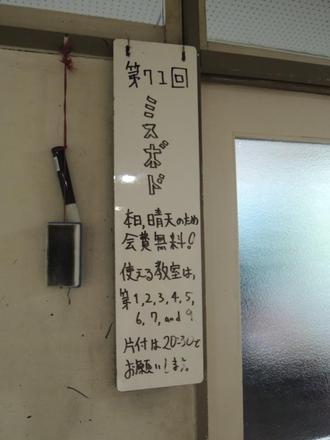 第71回
ミスボド
本日,晴天のため
会費無料!
使える教室は、
第1,2,3,4,5,
6,7,and 9!
片付は20:50まで
お願いします。